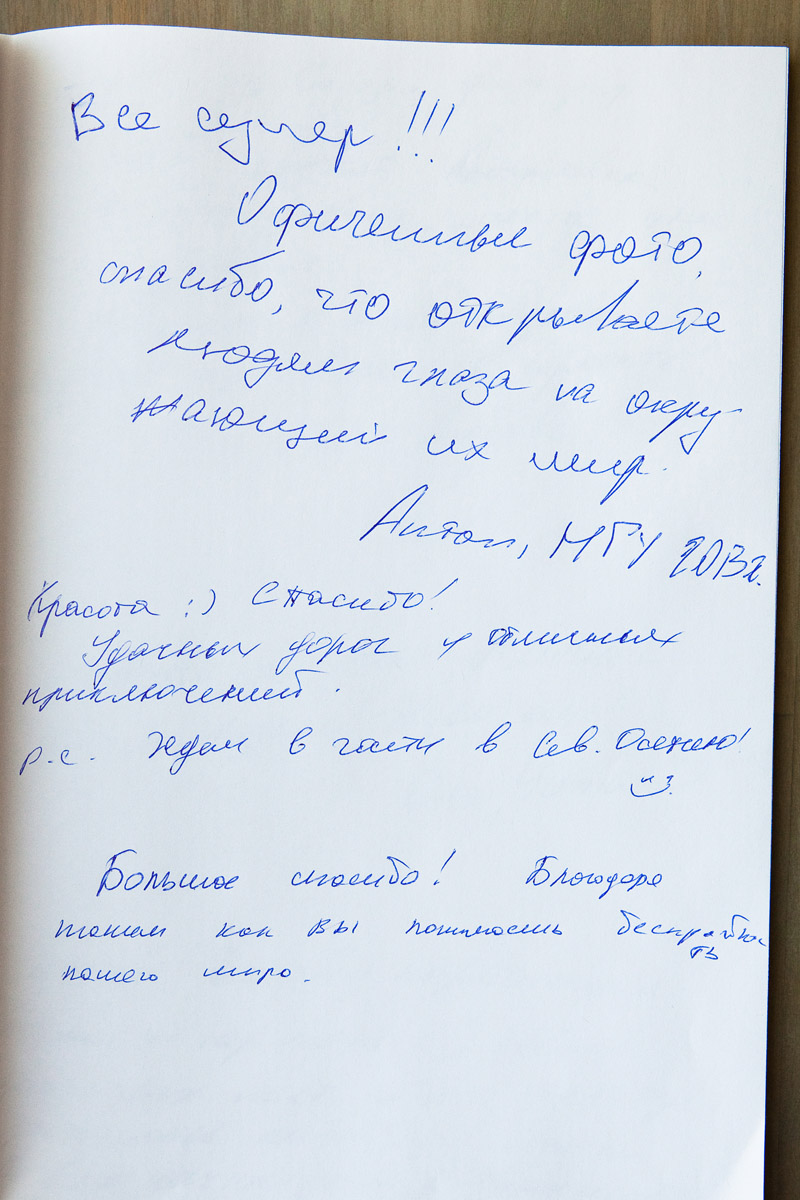 Все супер!!!
Офигенные фото,
спасибо, что открываете
людям глаза на окру-
жающий их мир.
Антон, МГУ 2013г.
Красота :) Спасибо!
Удачных дорог и отличных
приключений.
P.S. Ждем в гости в Сев. Осетию!
Большое спасибо! Благодаря
таким как вы понимаешь
нашего мира.